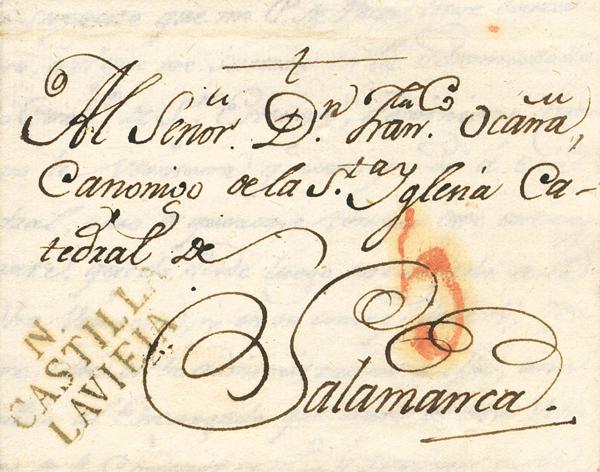 Al Señor. Dn. Franco. Ocaña,
Canonigo de la Sta. Yglesia Ca-
tedral de
Salamanca.
N
CASTILLA
LAVIEJA